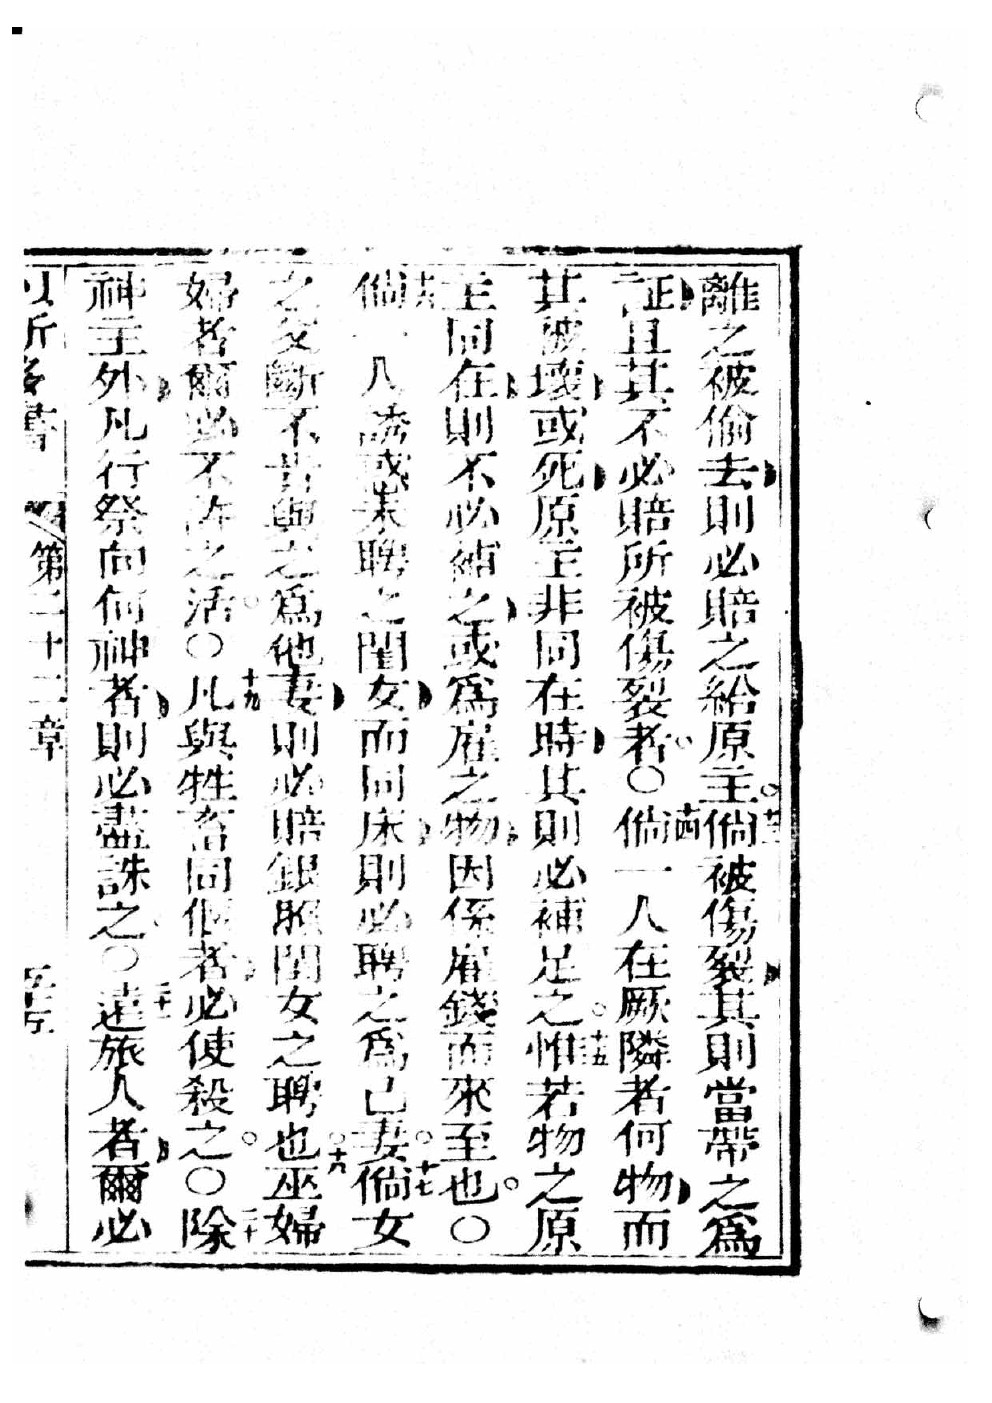 離之被偷去則必賠之給原主十三倘被傷裂其則當帶之爲
証且其不必賠所被傷裂者○十四倘一人在厥隣者何物而
其被壞或死原主非同在時其則必補足之十五惟若物之原
主同在則不必補之或爲雇之物因係雇錢而來至也○
十六倘一人誘惑未聘之閨女而同床則必聘之爲己妻十七倘女
之父斷不肯與之爲他妻則必賠銀照閨女之聘也十八巫婦
婦者爾必不許之活○十九凡與牲畜同偃者必使殺之○二十除
神主外凡行祭向何神者則必盡誅之○二十一遠旅人者爾必
第二十二章